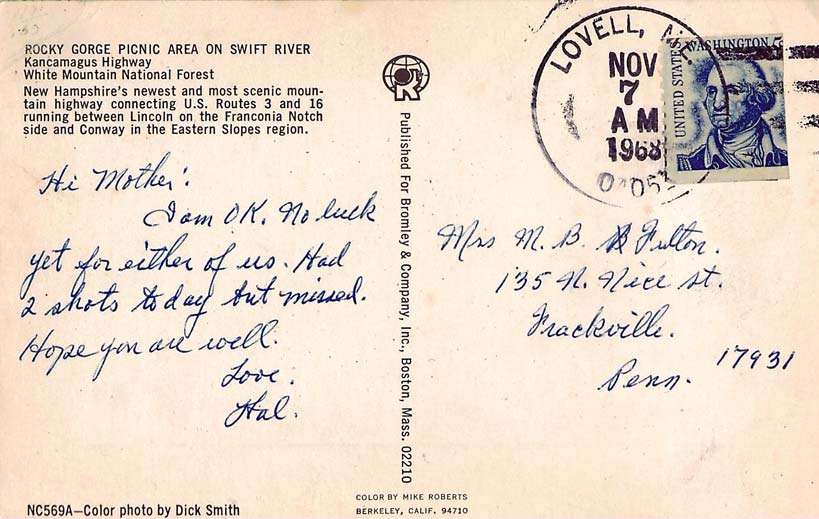 ROCKY GORGE PICNIC AREA ON SWIFT RIVER
Kancamagus Highway
White Mountain National Forest
New Hampshire's newest and most scenic moun-
tain highway connecting U.S. Routes 3 and 16
running between Lincoln on the Franconia Notch
side and Conway in the Eastern Slopes region.
Hi Mother!
I am OK. No luck
yet for either of us. Had
2 shots today but missed.
Hope you are well.
Love.
Hal.
NC569A—Color photo by Dick Smith
R
Published For Bromley & Company, Inc., Boston, Mass. 02210
COLOR BY MIKE ROBERTS
BERKELEY, CALIF. 94710
LOVELL,
NOV
7
AM
1968
UNITED STATES
WASHINGTON 5c
Mrs M. B. Fulton.
135 N. Nice st.
Frackville.
17931
Penn.